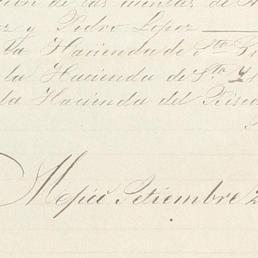 cion de las cuentas de
y Pedro Lopez
la Hacienda de Sta
la Hacienda de Sta
la Hacienda del
Mejico Setiembre 2